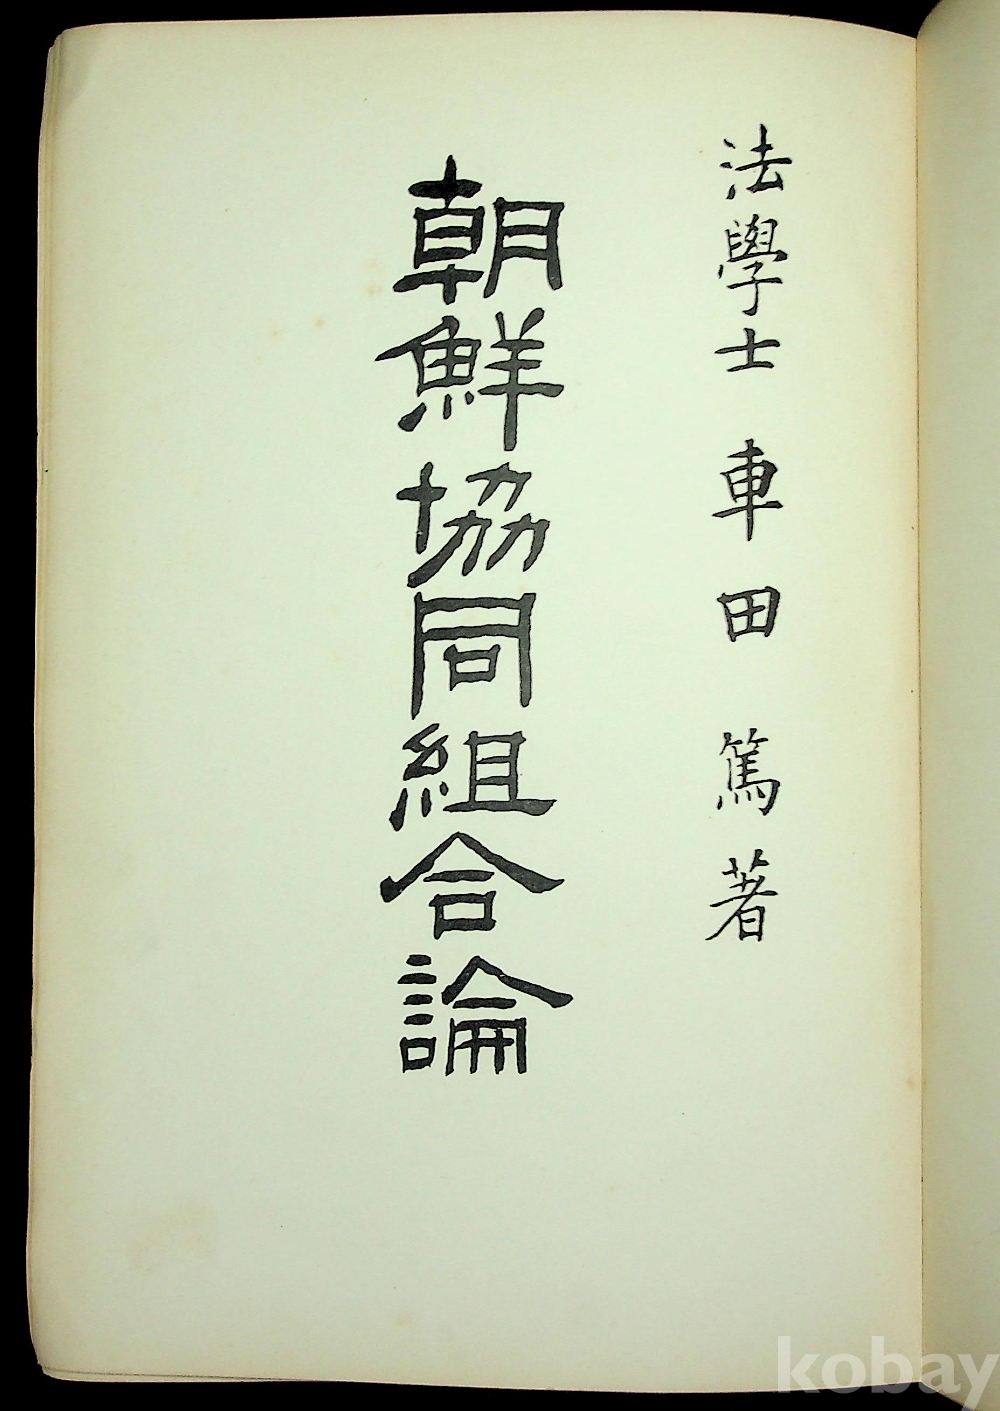 法學士 車田篤著
朝鮮協同組合論
kobay